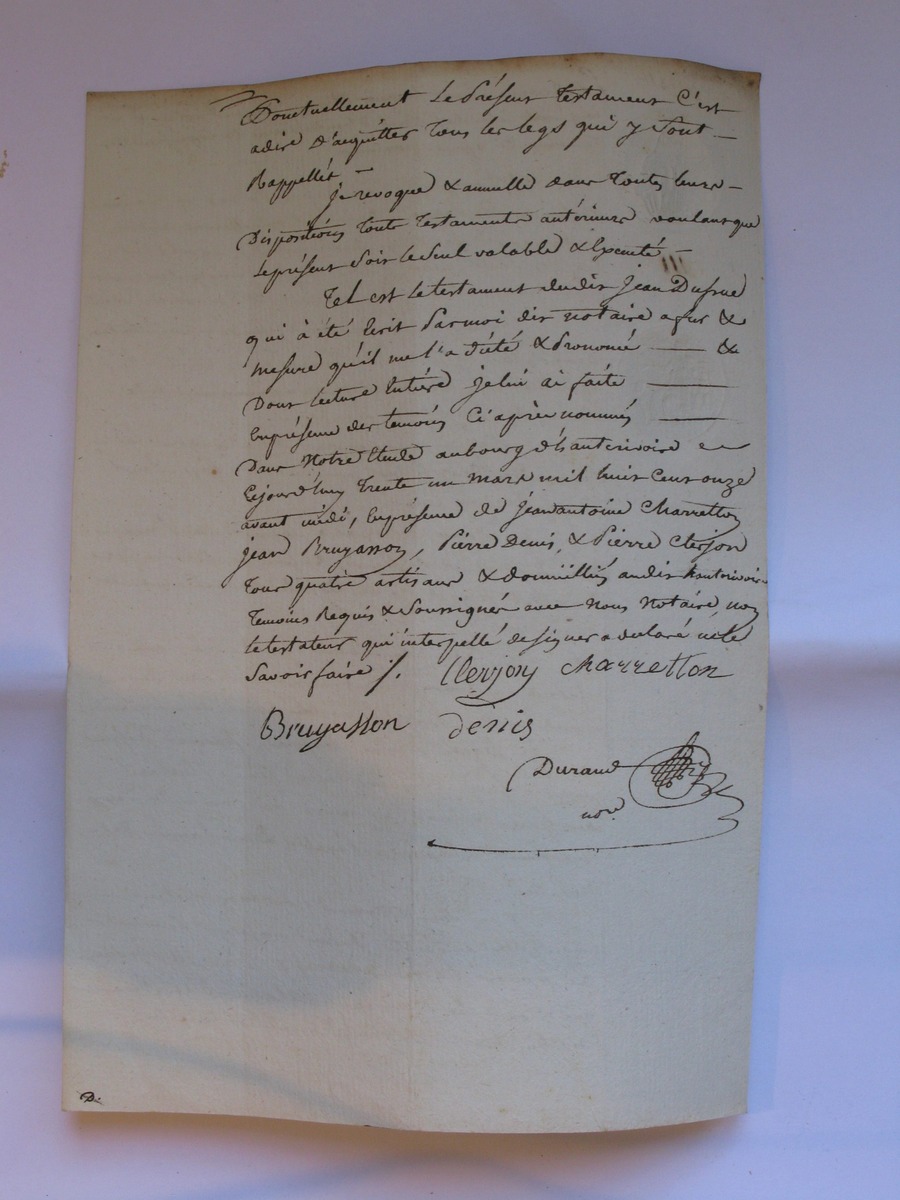 Ponctuellement le présent testament c'est
adire d'acquitter tous les legs qui y sont
Rappellés
je revoque & annulle dans toutes leurs
Dispositions touts testaments antérieurs voulant que
le présent soit le seul valable & Executé
Tel est le testament dudit Jean
qui à été Ecrit par moi dit notaire a fur &
mesure qu'il me l'a dicté & Prononcé &
Dont lecture Entière je lui ai faite
En présence des temoins Ci après nommés
Dans Notre Etude au bourg d'hauterivoire
Cejourd'huy trente un mars mil huit Cent onze
avant midi, En présence de Jeanantoine Charretton
jean Bruyasson, Pierre Denis, & Pierre Clerjon
tous quatre artisans & domicilliés audit hauterivoire
temoins Requis & Soussignés avec Nous Notaire, non
le testateur qui interpellé de signer a declaré ne le
Savoir faire /. Clerjon Charretton
Bruyasson denis
Durand
nore.
D.